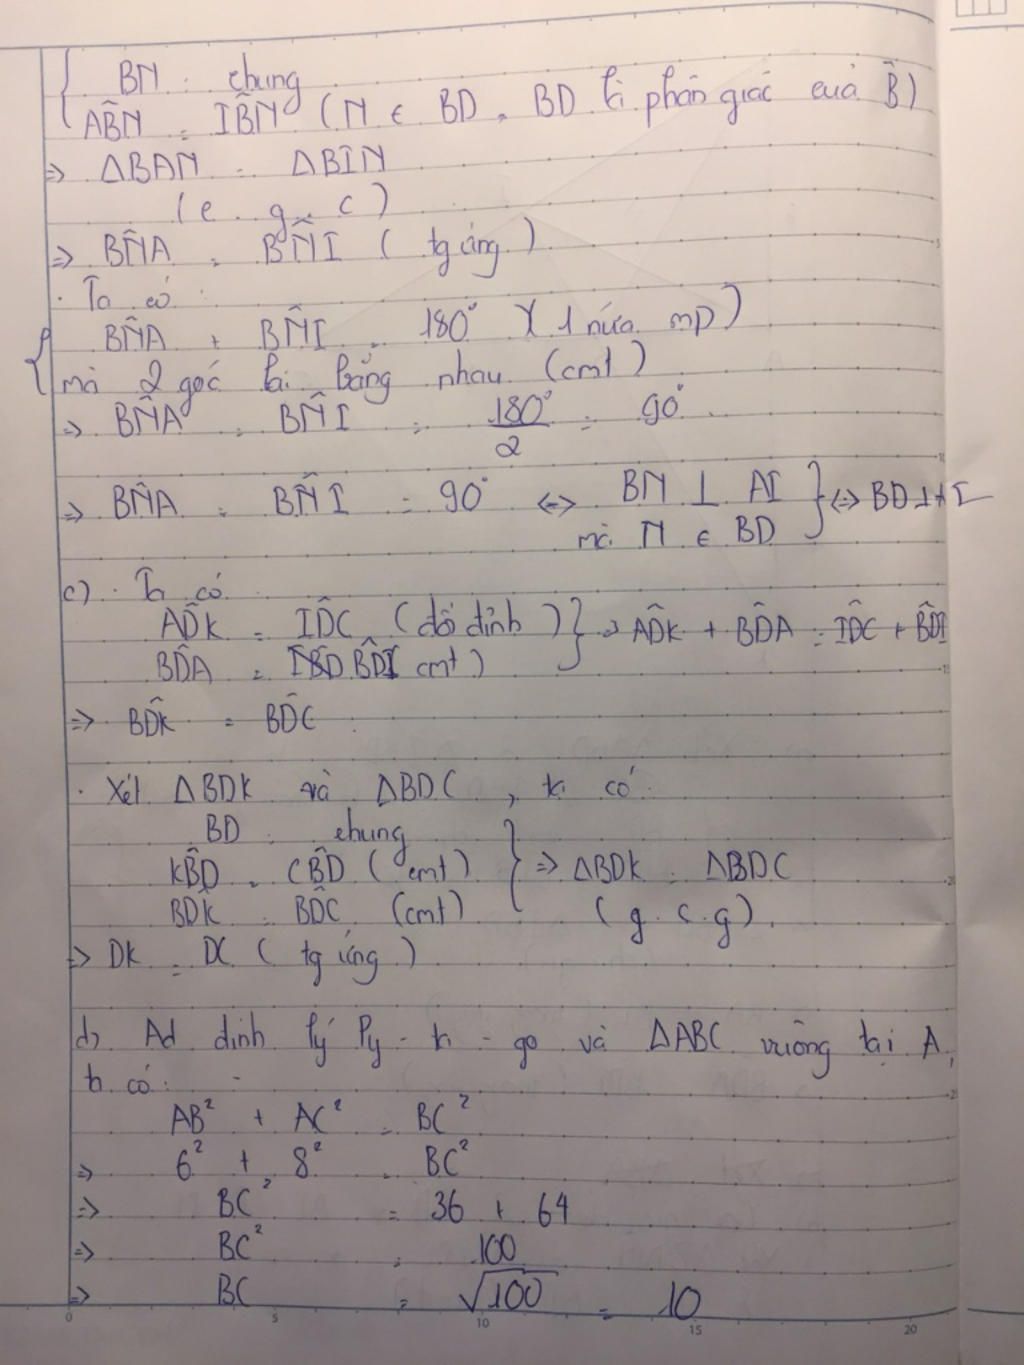 BN : chung
AB̂N = IB̂N ( N ∈ BD, BD là phân giác của B̂ )
=> ΔBAN = ΔBIN
( c . g . c )
=> BN̂A = BN̂I ( tg ứng )
· Ta có :
BN̂A + BN̂I = 180° ( 1 nửa mp )
mà 2 góc lại bằng nhau (cmt)
=> BN̂A = BN̂I = 180°/2 = 90°
=> BN̂A = BN̂I = 90° <=> BN ⊥ AI mà N ∈ BD } <=> BD ⊥ AI
c) · Ta có
AD̂K = ID̂C (đố đỉnh) } => AD̂K + BD̂A = ID̂C + BD̂I
BD̂A = BD̂I cmt)
=> BD̂K = BD̂C
· Xét ΔBDK và ΔBDC , ta có
BD : chung
KB̂D = CB̂D ( cmt) } => ΔBDK = ΔBDC
BD̂K = BD̂C (cmt) ( g . c . g ) .
=> DK = DC ( tg ứng )
d) Ad định lý Py - ta - go và ΔABC vuông tại A,
ta có :
AB² + AC² = BC²
=> 6² + 8² = BC²
=> BC² = 36 + 64
=> BC² = 100
=> BC = √100 = 10
0 5 10 15 20